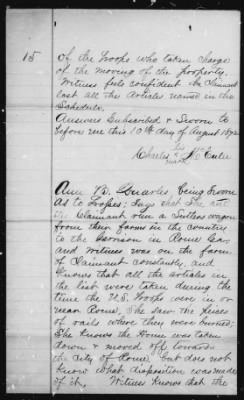 15
of the troops who taken charge
of the moving of the property,
Witness feels confident the Claimant
lost all the articles named in the
Schedule.
Answers Subscribed & Sworn to
before me this 10th day of August 1872
his
Charles X McEntee
mark
Ann B. Quarles being sworn
as to loyalty; Says that She and
the Claimant run a Sutlers wagon
from their farms in the country
to the Garrison in Rome Ga,
and Witness was on the farm
of Claimant constantly, and
Knows that all the articles in
the list were taken during the
time the U.S. troops were in or
near Rome, She saw the pieces
of rails where they were burned;
She knows the House was taken
down & moved off towards
the City of Rome, but does not
know what disposition was made
of it, Witness knows that the